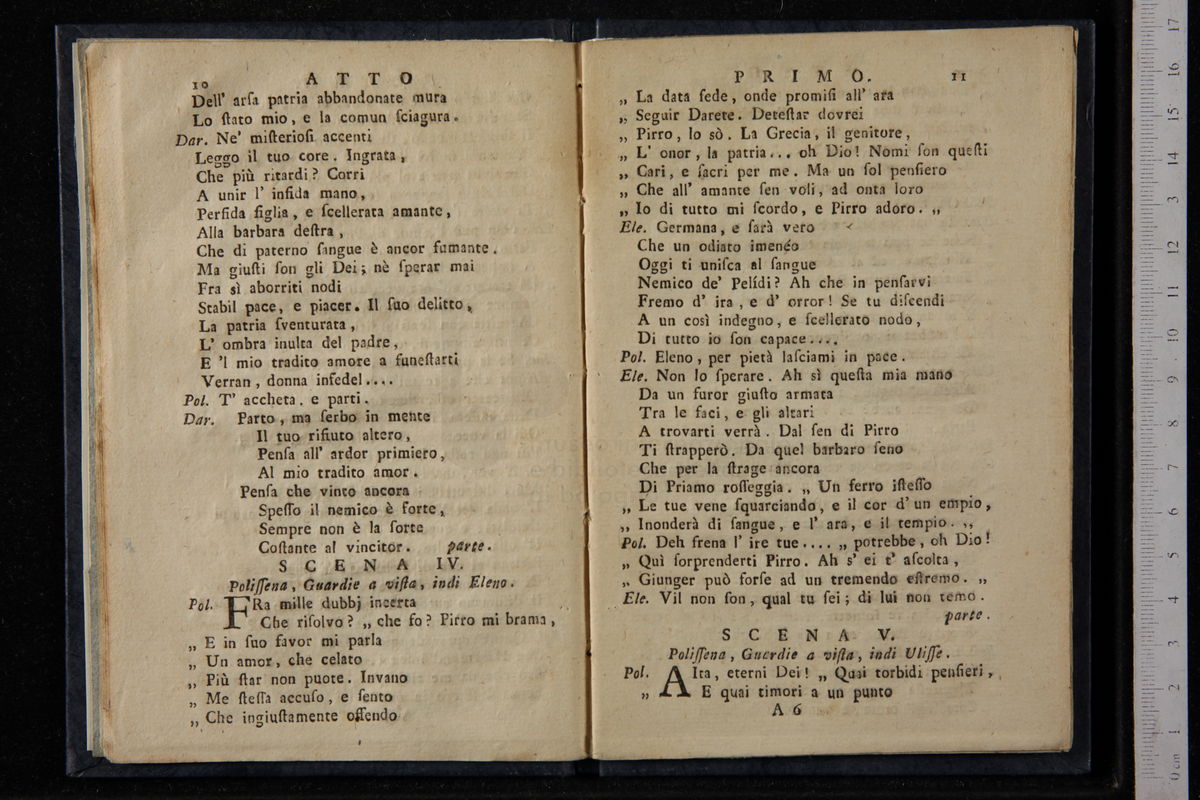 10 ATTO
Dell' arſa patria abbandonate mura
Lo ſtato mio, e la comun ſciagura.
Dar. Ne' miſterioſi accenti
Leggo il tuo core. Ingrata,
Che più ritardi? Corri
A unir l' infida mano,
Perfida figlia, e ſcellerata amante,
Alla barbara deſtra,
Che di paterno ſangue è ancor fumante.
Ma giuſti ſon gli Dei; nè ſperar mai
Fra sì aborriti nodi
Stabil pace, e piacer. Il ſuo delitto,
La patria ſventurata,
L' ombra inulta del padre,
E 'l mio tradito amore a funeſtarti
Verran, donna infedel....
Pol. T' accheta. e parti.
Dar. Parto, ma ſerbo in mente
Il tuo rifiuto altero,
Penſa all' ardor primiero,
Al mio tradito amor.
Penſa che vinto ancora
Speſſo il nemico è forte,
Sempre non è la ſorte
Coſtante al vincitor. parte.
SCENA IV.
Poliſſena, Guardie a viſta, indi Eleno.
Pol. FRa mille dubbj incerta
Che riſolvo? „ che fo? Pirro mi brama,
„ E in ſuo favor mi parla
„ Un amor, che celato
„ Più ſtar non puote. Invano
„ Me ſteſſa accuſo, e ſento
„ Che ingiuſtamente offendo
PRIMO. 11
„ La data fede, onde promiſi all' ara
„ Seguir Darete. Deteſtar dovrei
„ Pirro, lo sò. La Grecia, il genitore,
„ L' onor, la patria... oh Dio! Nomi ſon queſti
„ Cari, e ſacri per me. Ma un ſol penſiero
„ Che all' amante ſen voli, ad onta loro
„ Io di tutto mi ſcordo, e Pirro adoro. „
Ele. Germana, e ſarà vero
Che un odiato imenéo
Oggi ti uniſca al ſangue
Nemico de' Pelídi? Ah che in penſarvi
Fremo d' ira, e d' orror! Se tu diſcendi
A un così indegno, e ſcellerato nodo,
Di tutto io ſon capace....
Pol. Eleno, per pietà laſciami in pace.
Ele. Non lo ſperare. Ah sì queſta mia mano
Da un furor giuſto armata
Tra le faci, e gli altari
A trovarti verrà. Dal ſen di Pirro
Ti ſtrapperò. Da quel barbaro ſeno
Che per la ſtrage ancora
Di Priamo roſſeggia. „ Un ferro iſteſſo
„ Le tue vene ſquarciando, e il cor d' un empio,
„ Inonderà di ſangue, e l' ara, e il tempio. „
Pol. Deh frena l' ire tue.... „ potrebbe, oh Dio!
„ Quì ſorprenderti Pirro. Ah s' ei t' aſcolta,
„ Giunger può forſe ad un tremendo eſtremo. „
Ele. Vil non ſon, qual tu ſei; di lui non temo.
parte.
SCENA V.
Poliſſena, Guardie a viſta, indi Uliſſe.
Pol. AIta, eterni Dei! „ Quai torbidi penſieri,
„ E quai timori a un punto
A 6